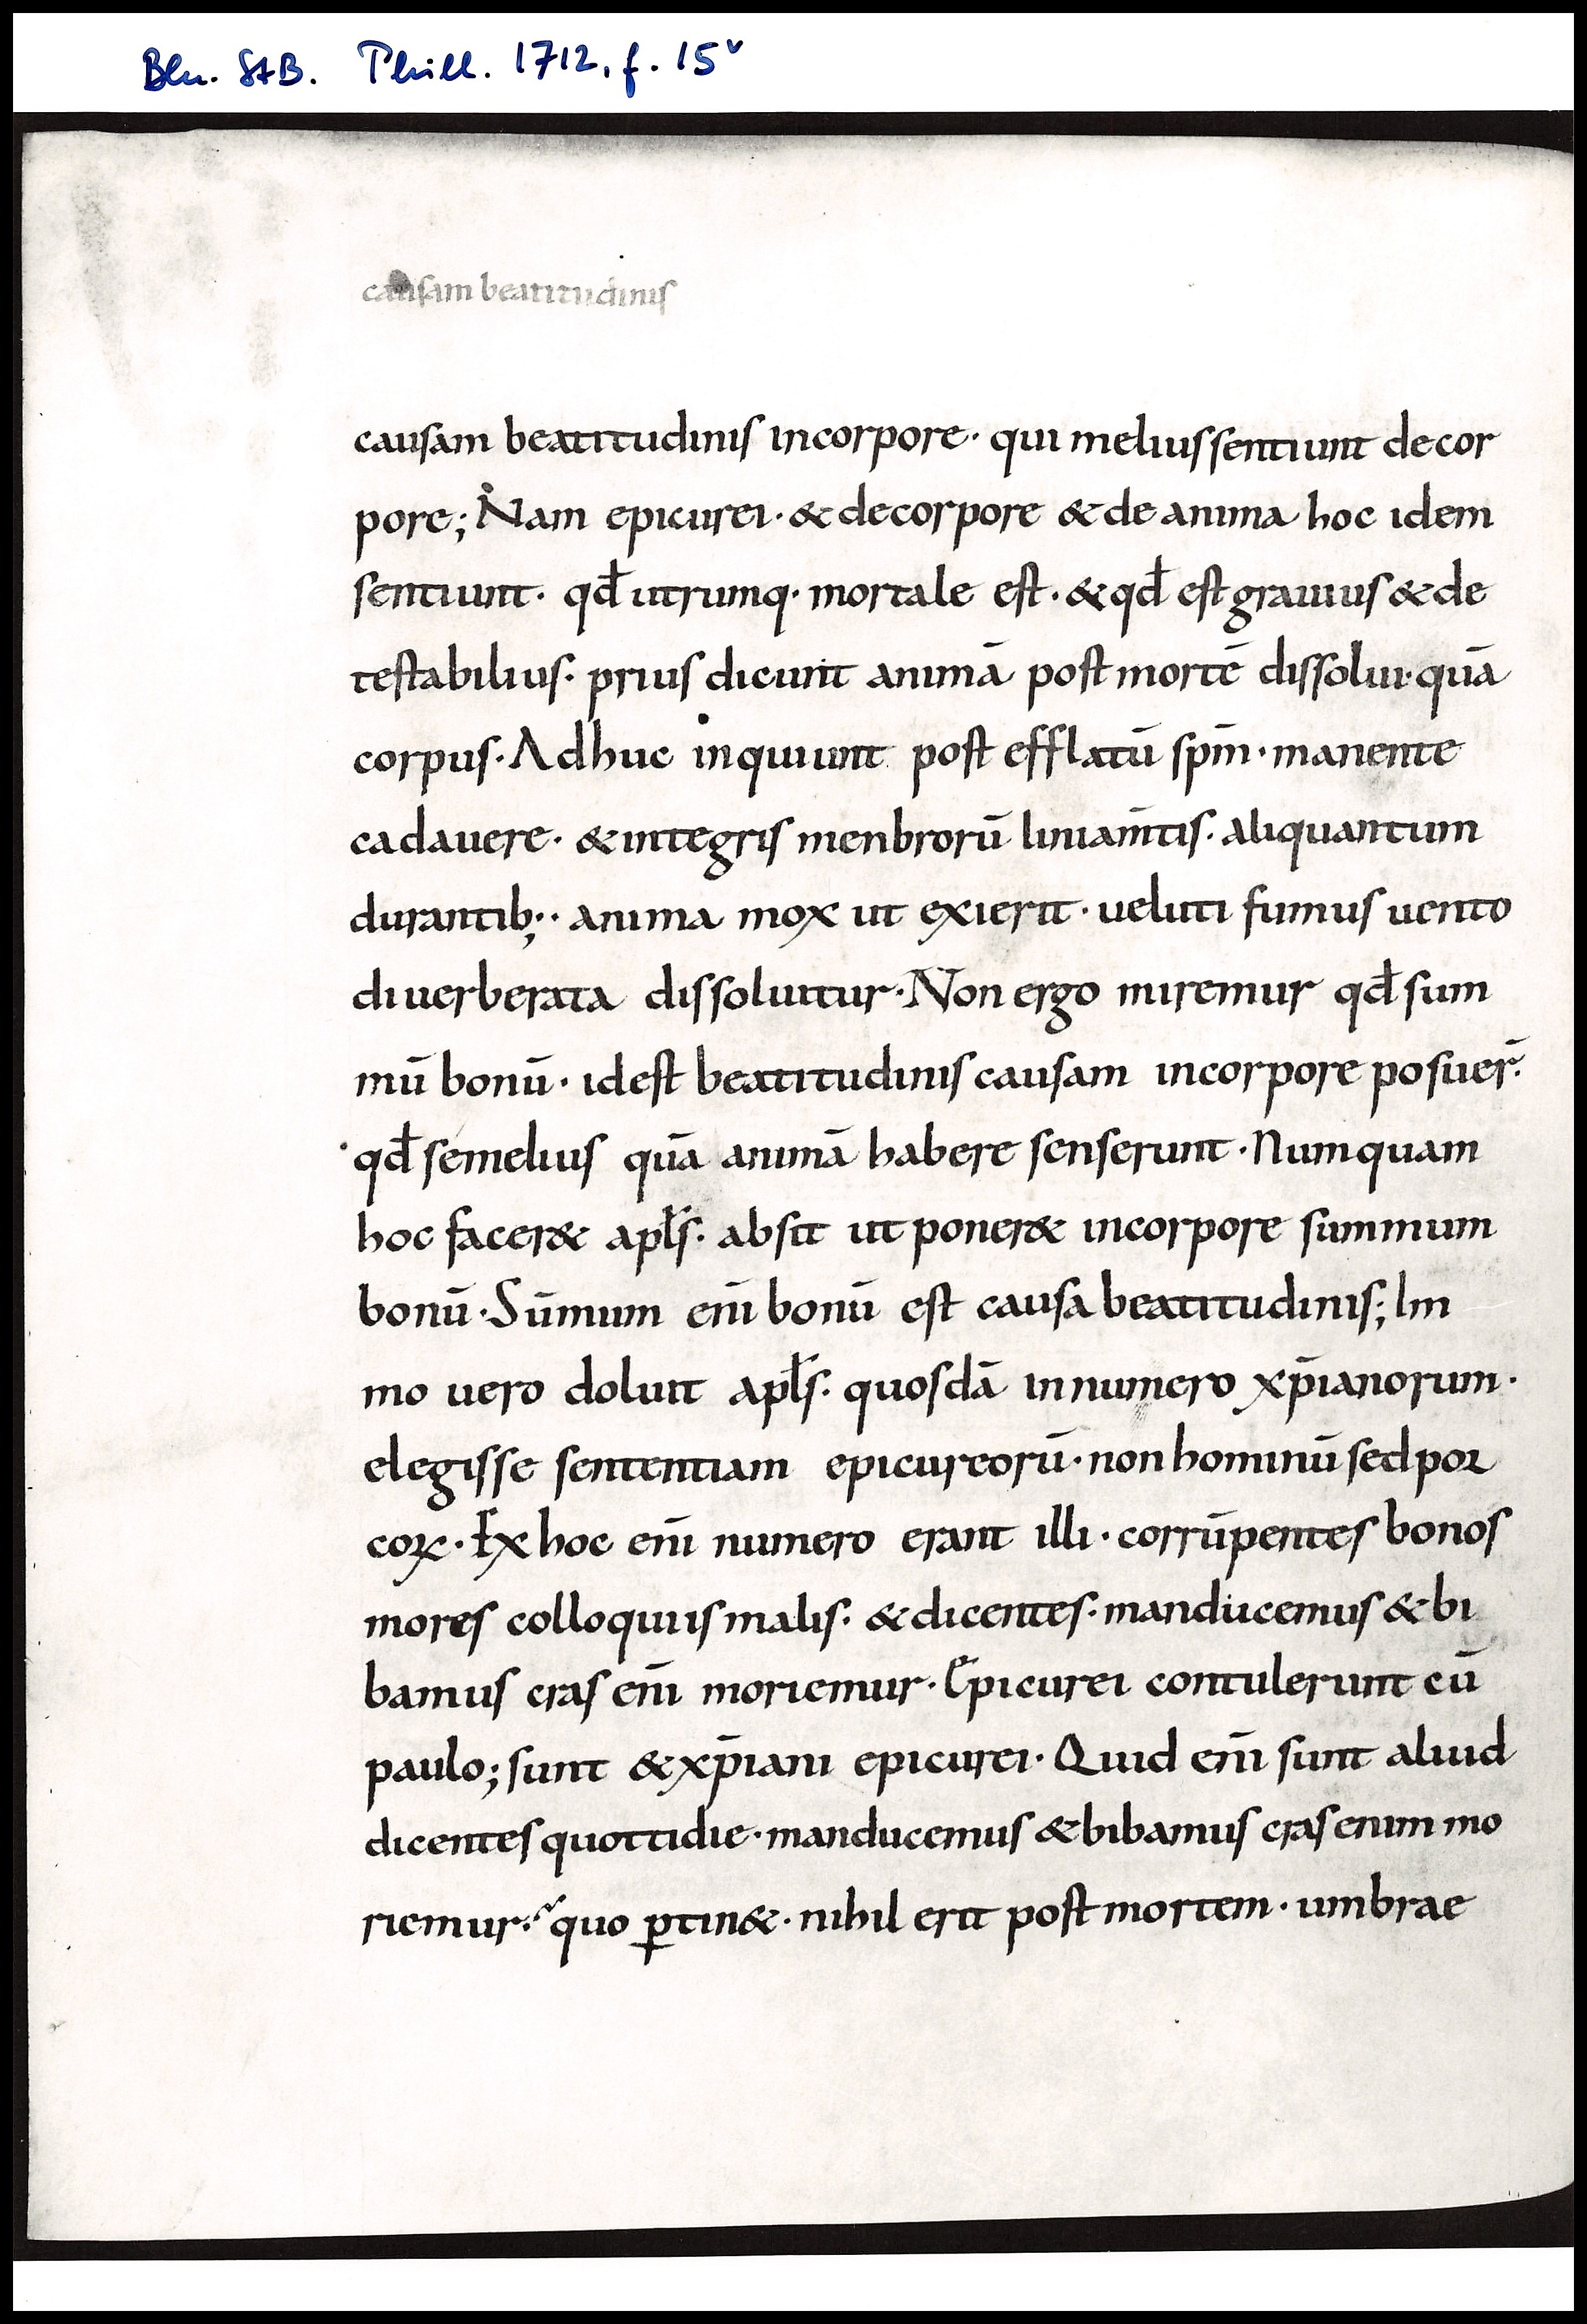 Bln. StB. Phill. 1712, f. 15v
causam beatitudinis
causam beatitudinis incorpore· qui meliuſſentiunt decor
pore; Nam epicurei· & decorpore & de anima hoc idem
sentiunt· qd̄ utrumq· mortale eſt· & qd̄ eſt grauiuſ & de
teſtabiliuſ· priuſ dicunt animā poſt mortē diſſolui· quā
corpuſ· Adhuc inquiunt poſt efflatū ſpm̄· manente
cadauere· & integriſ menbrorū liniam̄tiſ· aliquantum
durantib;· anima mox ut exierit· ueluti fumuſ uento
diuerberata diſſoluitur· Non ergo miremur qd̄ ſum
mū bonū· ideſt beatitudiniſ cauſam incorpore poſuer̄·
qd̄ ſemeliuſ quā animā habere ſenſerunt· Numquam
hoc facer& apl̄ſ· abſit ut poner& incorpore ſummum
bonū· Sūmum enī bonū eſt cauſa beatitudiniſ; Im
mo uero doluit apl̄ſ· quoſdā innumero xp̄ianorum·
elegiſſe ſententiam epicureorū· non hominū ſed por
coꝝ· Ex hoc enī numero erant illi· corrūpenteſ bonoſ
moreſ colloquiiſ maliſ· & dicenteſ· manducemuſ & bi
bamuſ craſ enī moriemur· Epicurei contulerunt cū
paulo; ſunt & xp̄iani epicurei· Quid enī ſunt aliud
dicenteſ quottidie· manducemuſ & bibamuſ craſ enim mo
riemur· quo ꝑtin&· nihil erit poſt mortem· umbrae